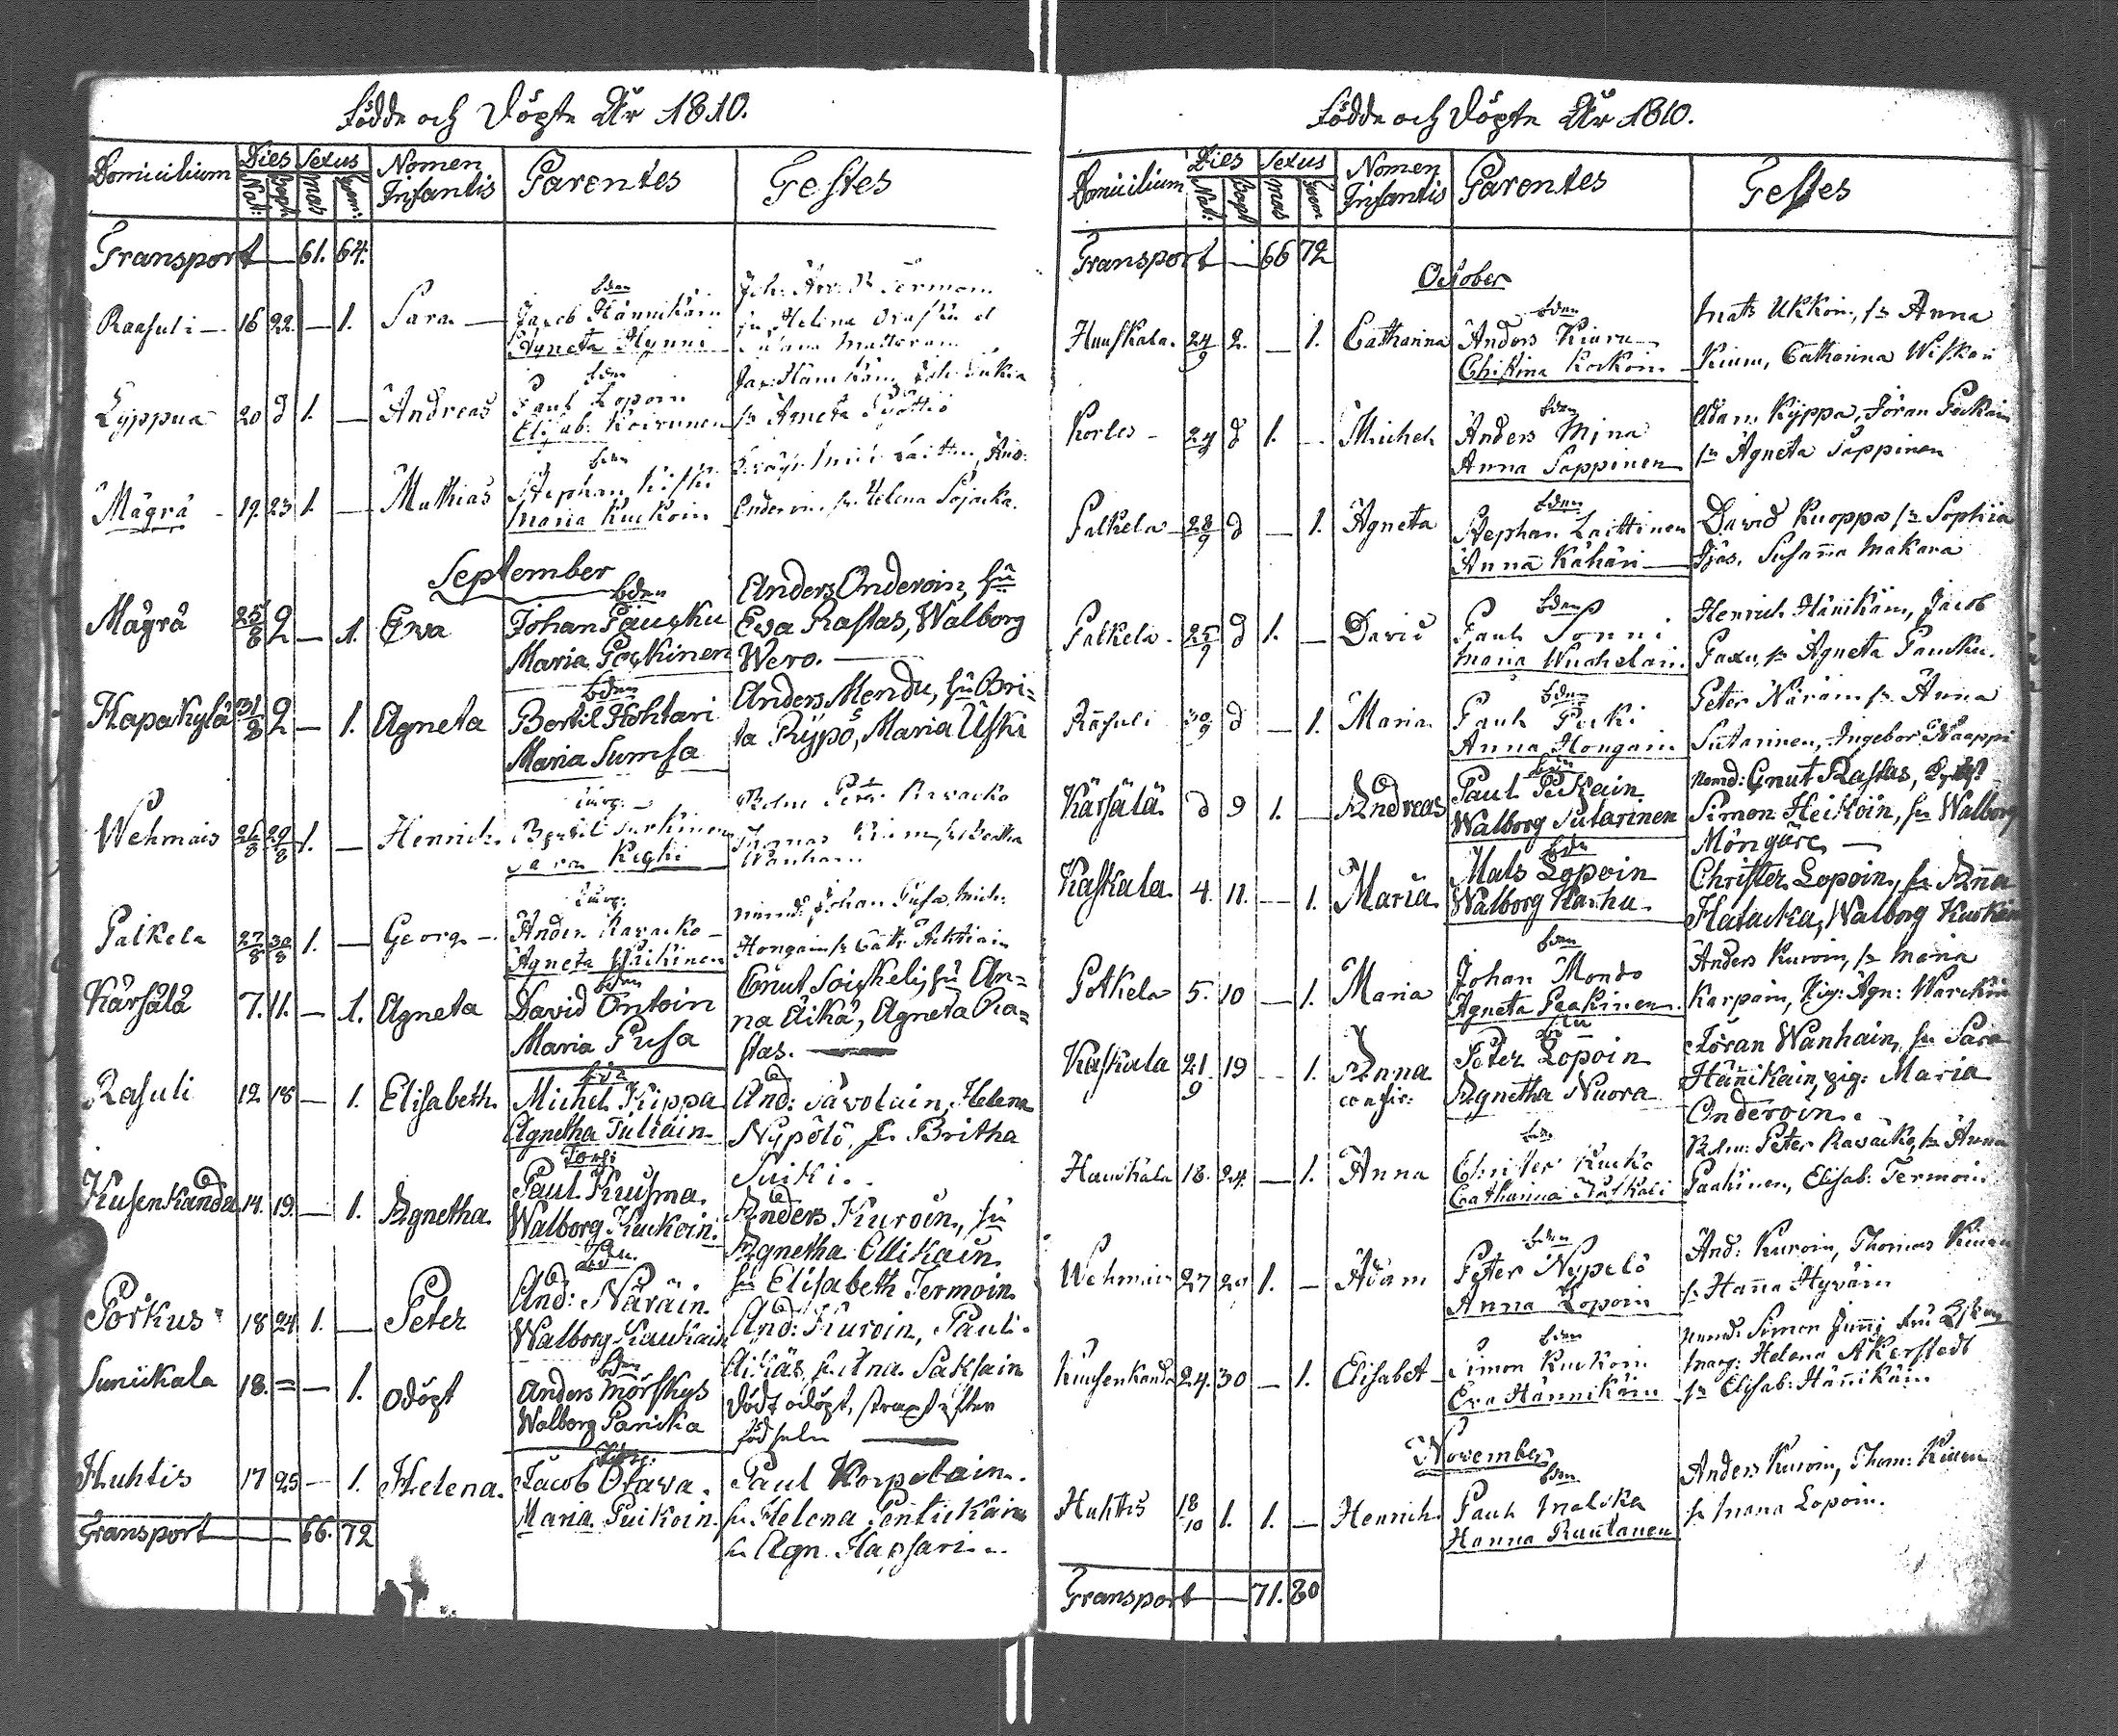 Födde och Döpte År 1810.
Domicilium Dies Sexus Nomen Infantis Parentes Testes
Nat: Bapt. mas foem:
Transport — 61. 64.
Raasuli — 16 22 — 1. Sara — bdn
Jacob Hännikäin
Agneta Hynni
Lyppua 20 d 1. — Andreas bdn
Paul Lopoin
Elisab: Koirunen
Jac: Hännikäin
sr Agneta Pyöttiö
Mägrä 19. 23 1. — Mathias bdn
Stephan Kiski
Maria Kuckoin
Enderoin, sr Helena Sojacka.
September
Mägrä 25/8 2 — 1. Ewa bdn
Johan Päucku
Maria Pockinen
Anders Onderoin, hu
Ewa Rastas, Walborg
Wero. —
Hapakylä 31/8 2 — 1. Agneta bdn
Bertil Hohtari
Maria Sumsa
Anders Mendu, hu Bri=
ta Rypö, Maria Uski
Wehmais 26/8 29/8 1. — Henrich
Bertil Surkinen
Sara Kighi
Peter Rawacko
Thomas Kiuru
Wanhain
Palkela 27/8 30/8 1. — Georg —
Anders Rawacko —
Agneta Häikinen
nämd: Johan Pusa, Mich:
Hongain
Kärsälä 7. 11. — 1. Agneta bdn
David Ontoin
Maria Pusa
Cnut Soiskeli, hu An=
na Äikä, Agneta Ra=
stas. —
Rasuli 12 18 — 1. Elisabeth. bdn
Michel Kippa
Agnetha Tuliain
And: Savolain, Helena
Nypölö, sr Britha
Suiki.
Kusenkanda 14. 19. — 1. Agnetha. Torp:
Paul Kuisma.
Walborg Kuckoin.
Anders Kuroin, hu
Agnetha Ellikain
sr Elisabeth Termoin.
Porkus 18 24 1. — Peter
And: Näräin.
Walborg Kaukain
And: Kuroin, Pauli
Elikäs, sr Anna Saksain
Sunikala 18. = — 1. Odöpt bdn
Anders Mörskys
Walborg Parikka
Död odöpt, strax efter
födseln —
Huhtis 17 25 — 1. Helena.
Jacob Otawa.
Maria Puikoin.
Paul Korpolain.
sr Helena Pentickäin
sr Agn. Hapsari
Transport — 66. 72
Födde och Döpte År 1810.
Domicilium Dies Sexus Nomen Infantis Parentes Testes
Nat: Bapt mas foem
Transport — 66 72
October
Hauskala. 24/9 2. — 1. Catharina bdn
Anders Kiuru
Christina Kockoin
Mats Ukkoin, sr Anna
Kiuru, Catharina Wiskari
Korles — 24/9 d 1. — Michel bdn
Anders Mjna
Anna Sappinen
Adam Kyppa, Jöran Pockain
sr Agneta Sappinen
Palkela 28/9 d — 1. Agneta bdn
Stephan Laittinen
Anna Kähäri
David Kuoppa sr Sophia
Ijäs, Susanna Makara
Palkela 25/9 d 1. — David bdn
Paul Sonni
Maria Wuchelain
Henrich Hännikäin, Jacob
Paxu, sr Agneta Paucku.
Räsuli 30/9 d — 1. Maria bdn
Paul Pocki
Anna Hongain
Peter Näräin sr Anna
Sutarinen, Ingebor Naappi
Kärsälä d 9 1. — Andreas bdn
Paul Pekain
Walborg Sutarinen
Nemd: Cnut Rastas,
Simon Heikoin, sr Walborg
Möngäre —
Kaskala 4. 11. — 1. Maria bdn
Mats Lopoin
Walborg Karhu
Christer Lopoin, sr Anna
Hatacka, Walborg Kuckoin
Potkela 5. 10 — 1. Maria bdn
Johan Mondo
Agneta Peakinen
Anders Kuroin, sr Maria
Karpain, Pig: Agn: Warckoin
Kaskala 21/9 19 — 1. Anna
Peter Lopoin
Agnetha Nuora
Jöran Wanhain, sr Sara
Hännikain, pig: Maria
Onderoin.
Hauskala 18. 24. — 1. Anna bdn
Christer Kucko
Catharina Ruskali
Peter Rawacko, sr Anna
Paakinen, Elisab: Termoin
Wehmais 27 29 1. — Adam bdn
Peter Nypelö
Anna Lopoin
And: Kuroin, Thomas Kiuru
sr Hanna Hyväin
Kuusenkanda 24. 30 — 1. Elisabet bdn
Simon Kuckoin
Eva Hännikäin
nämd: Simon Junni
Helena Akerstedt
sr Elisab: Hännikäin
November
Huhtis 18/10 1. 1. — Henrich. bdn
Paul Malcka
Hanna Ruutanen
Anders Kuroin, Thom: Kiuru
sr Maria Lopoin.
Transport — 71. 80